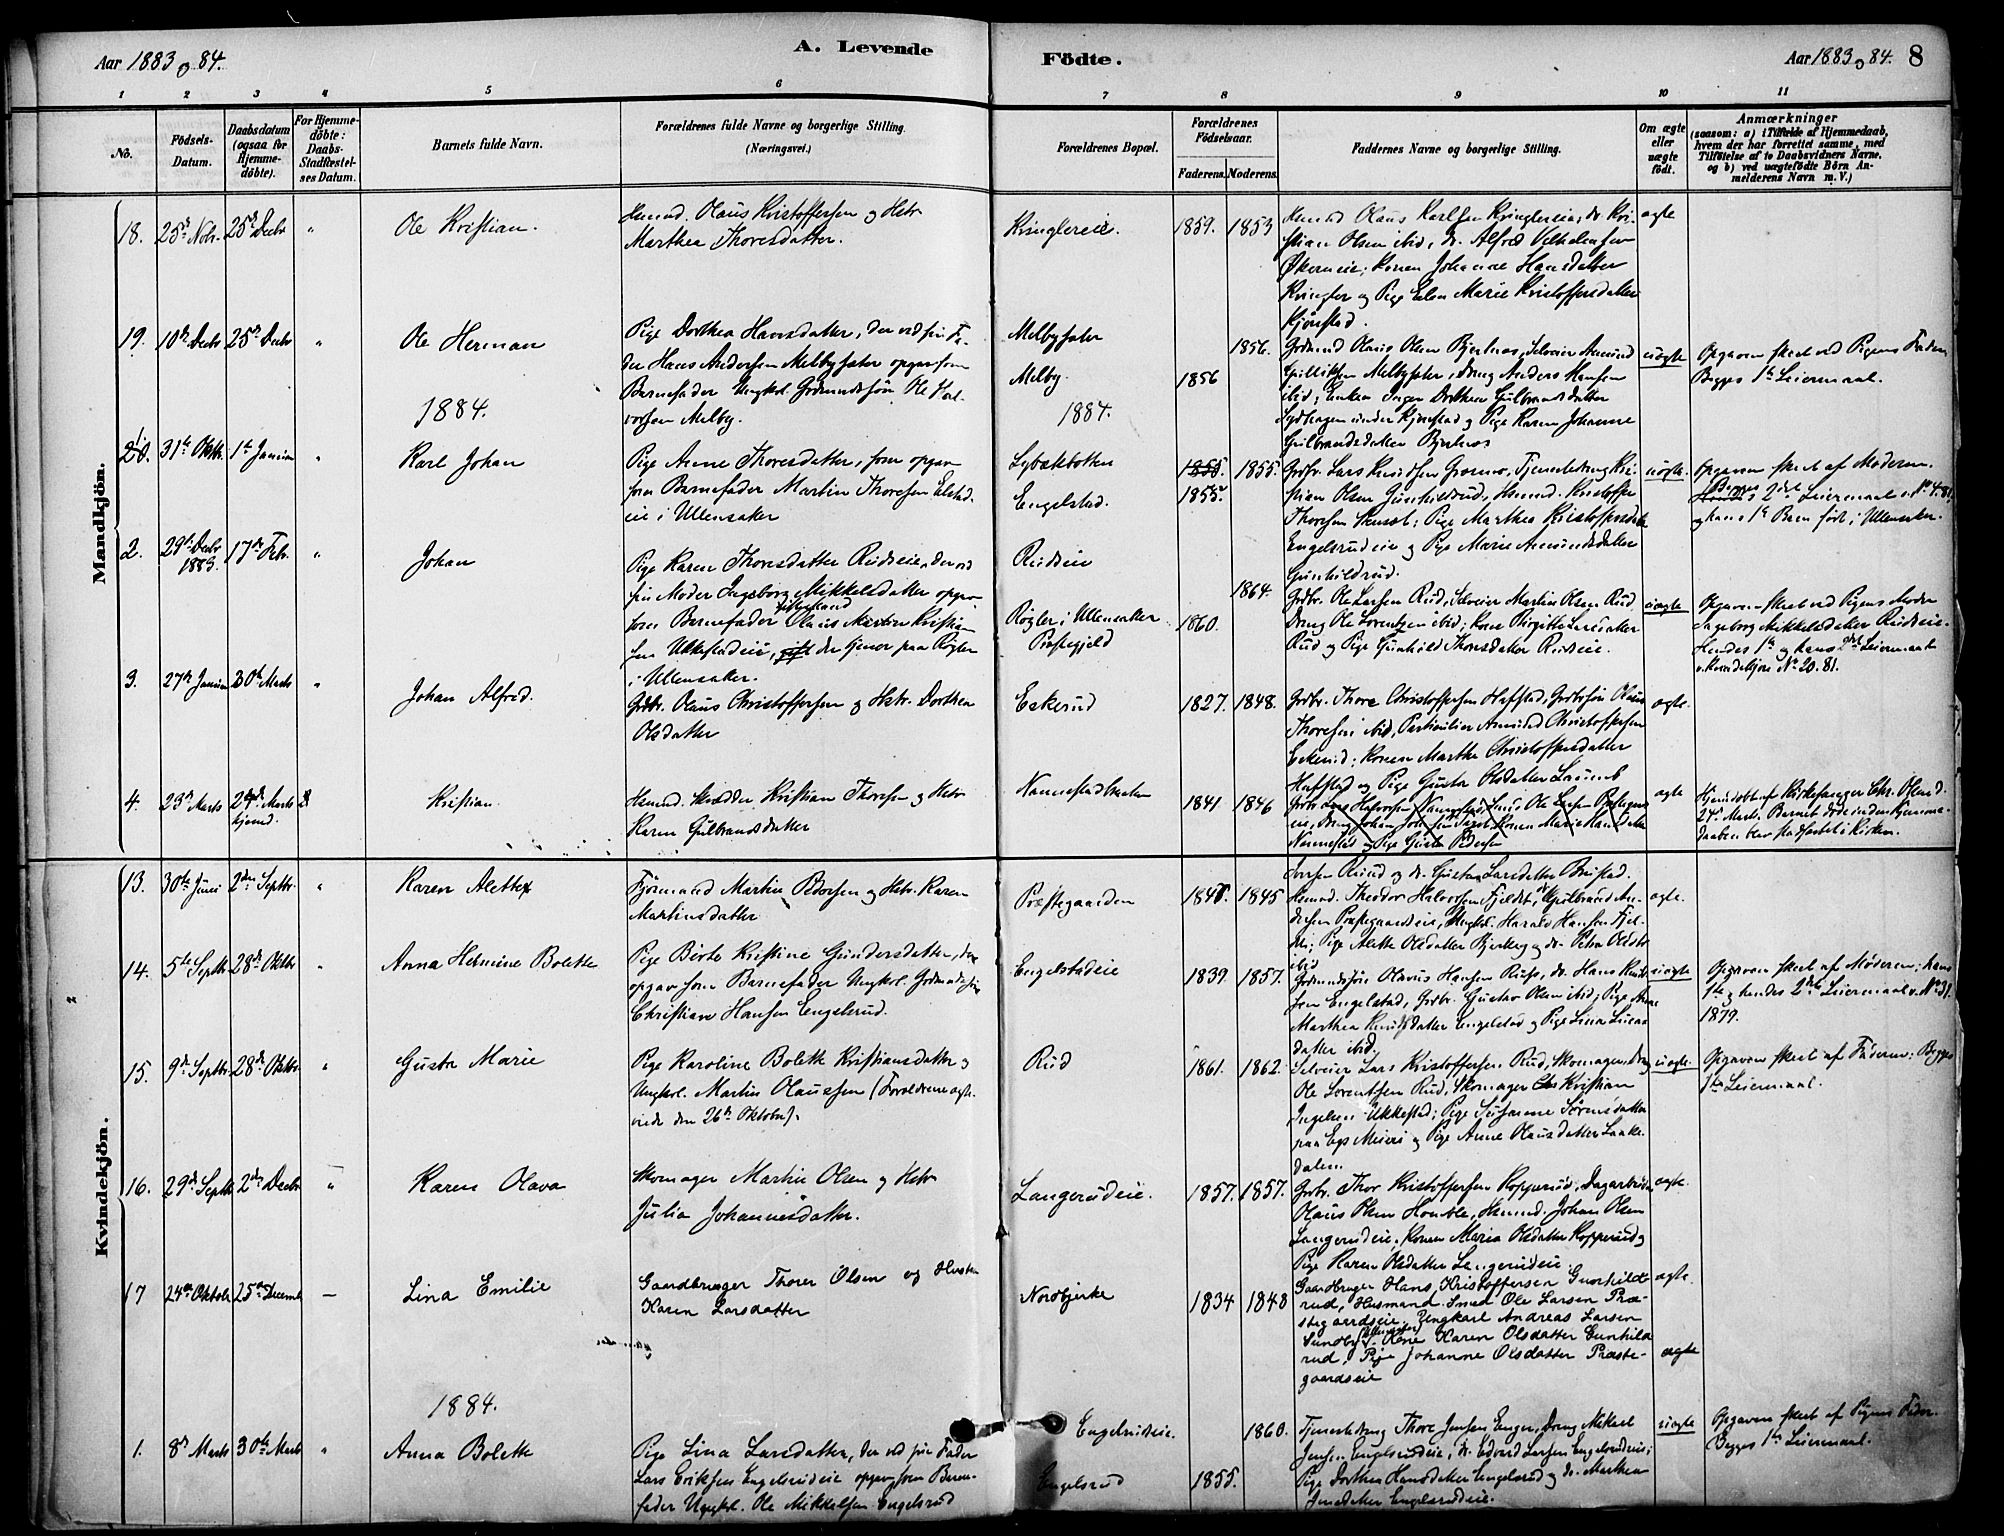 Aar 1883 og 84.
A. Levende
Födte.
Aar 1883 og 84.
8
1 2 3 4 5 6 7 8 9 10 11
No.
Födsels-
Datum.
Daabsdatum
(ogsaa for
Hjemme-
döbte).
For Hjemme-
döbte:
Daabs-
Stadfæstel-
ses Datum.
Barnets fulde Navn.
Forældrenes fulde Navne og borgerlige Stilling.
(Næringsvei.)
Forældrenes Bopæl.
Forældrenes
Födselsaar.
Faderens. Moderens.
Faddernes Navne og borgerlige Stilling.
Om ægte
eller
uægte
født.
Anmærkninger
(saasom: a) i Tilfælde af Hjemmedaab,
hvem der har forrettet samme, med
Tilföielse af to Daabsvidners Navne,
og b) ved uægtefödte Börn An-
melderens Navn m. V.)
Mandkjön.
18. 25de Novbr. 25de Decbr " Ole Kristian.
Husmd. Olaus Kristoffersen og Hstr
Marthea Thoresdatter.
Kringlereie. 1859. 1853
Husmd Olaus Karlsen Kringlereie, do Kri-
stian Olsen ibid, do. Alfred Vilhelmsen
Økerneie; Konen Johanne Hansdatter
Kringler og Pige Elen Marie Kristoffersdatter
Kjønstad.
ægte
19. 10de Decbr 25de Decbr " Ole Herman
Pige Dorthea Hansdatter, der ved sin Fa-
der Hans Andersen Melbysæter opgav som
Barnefader Ungkl. Grdmandssøn Ole Hal-
vorsen Melby.
Melbysæter
Melby.
1856 1856.
Grdmand Olaus Olsen Bjerknes, Selveier Amund
Gulliksen Melbysæter, Dreng Anders Hansen
ibid; Enken Inger Dorthea Gulbrandsdatter
Sydhagen under Kjønstad og Pige Karen Johanne
Gulbrandsdatter Bjerknes
uægte
Opgaven skeet ved Pigens Fader
Begges 1ste Leiermaal.
1884.
1884.
1. 31te Oktbr. 1ste Januar " Karl Johan
Pige Anne Thoresdatter, som opgav
som Barnefader Martin Thoresen Elstad-
eie i Ullensaker
Lybækbotten
Engelstad.
1855. 1855.
1855.
Grdbr. Lars Knudsen Gromo, Tjenestedreng Kri-
stian Olsen Gunhildrud, Husmd. Kristoffer
Thoresen; Pige Marthea Kristoffersdatter
Engelsrudeie og Pige Marie Amundsdatter
Gunhildrud.
uægte.
Opgaven skeet af Moderen.
Begges 2det Leiermaal
og hans 1ste Barn født i Ullensaker.
2. 29de Decbr 1883. 17de Febr. " Johan
Pige Karen Thoresdatter Rudseie, der ved
sin Moder Ingeborg Mikkelsdatter opgav
som Barnefader Olaus Martin Kristian-
sen Ukkestadeie, der tjener paa Røgler
i Ullensaker.
Rudseie
Røgler i Ullensaker
Præstegjeld
1860. 1864.
Grdbr. Ole Larsen Rud, Selveier Martin Olsen Rud
Dreng Ole Lorentzen ibid; Kone Birgitte Larsdatter
Rud og Pige Gunhild Thoresdatter Rudseie.
uægte
Opgaven skeet ved Pigens Moder
Ingeborg Mikkelsdatter Rudseie.
Hendes 1ste og hans 2det Leiermaal
v. Mandkjøn No 20. 81.
3. 27de Januar 30te Marts " Johan Alfred.
Grdbr. Olaus Christoffersen og Hstr. Dorthea
Olsdatter
Eskerud 1827. 1848.
Grdbr. Thore Christoffersen Hafstad, Grdbrsøn Olaus
Thoresen ibid, Partikulier Amund Christoffersen
Eskerud; Konen Marthe Christoffersdatter
Hafstad og Pige Gustava Olsdatter
ægte.
4. 23de Marts 24de Marts hjemd. Kristian
Husmd. Skrædder Kristian Thoresen og Hstr
Karen Gulbrandsdatter
Nannestadbraaten 1841. 1846
Grdbr. Lars Halvorsen Nannestad, Ole Larsen Præstegaards-
eie, Dreng Johan Konen Marie Hansdatter
Nannestad og Pige Gustava Pedersen
ægte
Hjemdøbt af Kirkesanger Chr. Ølsmd.
24de Marts. Barnet døde inden Hjemme-
daaben blev stadfæstet i Kirken.
Kvindekjön.
13. 30te Juni 2den Septbr. " Karen Alette
Husmand Martin Pedersen og Hstr. Karen
Martinsdatter
Præstegaarden 1845
Rud og do. Gustava Larsdatter
Husmd. Theodor Halvorsen Fjeldet, do Gulbrand An-
dersen Præstegaardseie, Ungkl. Harald Hansen Fjel-
det; Pige Alette Olsdatter Bjerkeg og do Petra Olsdtr
ibid
ægte.
14. 5te Septbr. 28de Oktbr " Anna Hermine Bolette
Pige Birte Kristine Gundersdatter, der
opgav som Barnefader Ungkl. Grdmandssøn
Christian Hansen Engelsrud.
Engelstadeie 1839. 1857.
Grdmandssøn Olavus Hansen Rust, do. Hans Knud-
sen Engelstad, Grdbr. Gustav Olsen ibid; Pige Anne
Marthea Knudsdatter Engelstad og Pige Lina
datter ibid.
uægte
Opgaven skeet af Moderen; hans
1ste og hendes 2det Leiermaal v. No 31.
1879.
15. 9de Septbr. 28de Oktbr. " Gusta Marie
Pige Karoline Bolette Kristiansdatter og
Ungkl. Martin Olaussen (Forældrene ægte-
viede den 26de Oktober).
Rud 1861. 1862.
Selveier Lars Kristoffersen Rud, Skomager, Dreng
Ole Lorentsen Rud, Skomager Kristian
Ingelsen Ukkestad; Pige Susanne Sørensdatter
paa Eys Meieri og Pige Anne Olausdatter Laake-
dalen.
uægte.
Opgaven skeet af Faderen; Begges
1ste Leiermaal.
16. 29de Septbr 2den Decbr " Karen Olava
Skomager Martin Olsen og Hstr
Julia Johannesdatter.
Langerudeie. 1857. 1857.
Grdbr. Thor Kristoffersen Kopperud, Dagarbeider
Olaus Olsen Homble, Husmd. Johan Olsen
Langerudeie, Konen Maria Olsdatter Kopperud og
Pige Karen Olsdatter Langerudeie.
ægte.
17 24de Oktober 25de Decembr — Lina Emilie
Gaardbruger Thorer Olsen og Hustru
Karen Larsdatter
Nordbjerke 1834 1848
Gaardbruger Hans Kristoffersen Gunhilds-
rud, Husmand Smed Ole Larsen Præ-
stegaardseie, Ungkarl Andreas Larsen
Sundby (Ullensaker), Kone Karen Olsdatter Gunhilds-
rud, Pige Johanne Olsdatter Præste-
gaardseie
ægte.
ægte
1884.
1. 8de Marts 30te Marts " Anna Bolette
Pige Lina Larsdatter, der ved sin Fader
Lars Eriksen Engelsrudeie opgav som Barne-
fader Ungkl. Ole Mikkelsen Engelsrud
Engelsrudeie.
Engelsrud
1855. 1860.
Tjenestedreng Thore Jensen Enger, Dreng Mikael
Jensen Engelsrudeie, do. Edvard Larsen Engelsrudeie;
Pige Dorthea Hansdatter Engelsrud og do. Marthea
Jensdatter Engelsrudeie.
uægte
Opgaven skeet af Pigens Fader.
Begges 1ste Leiermaal.